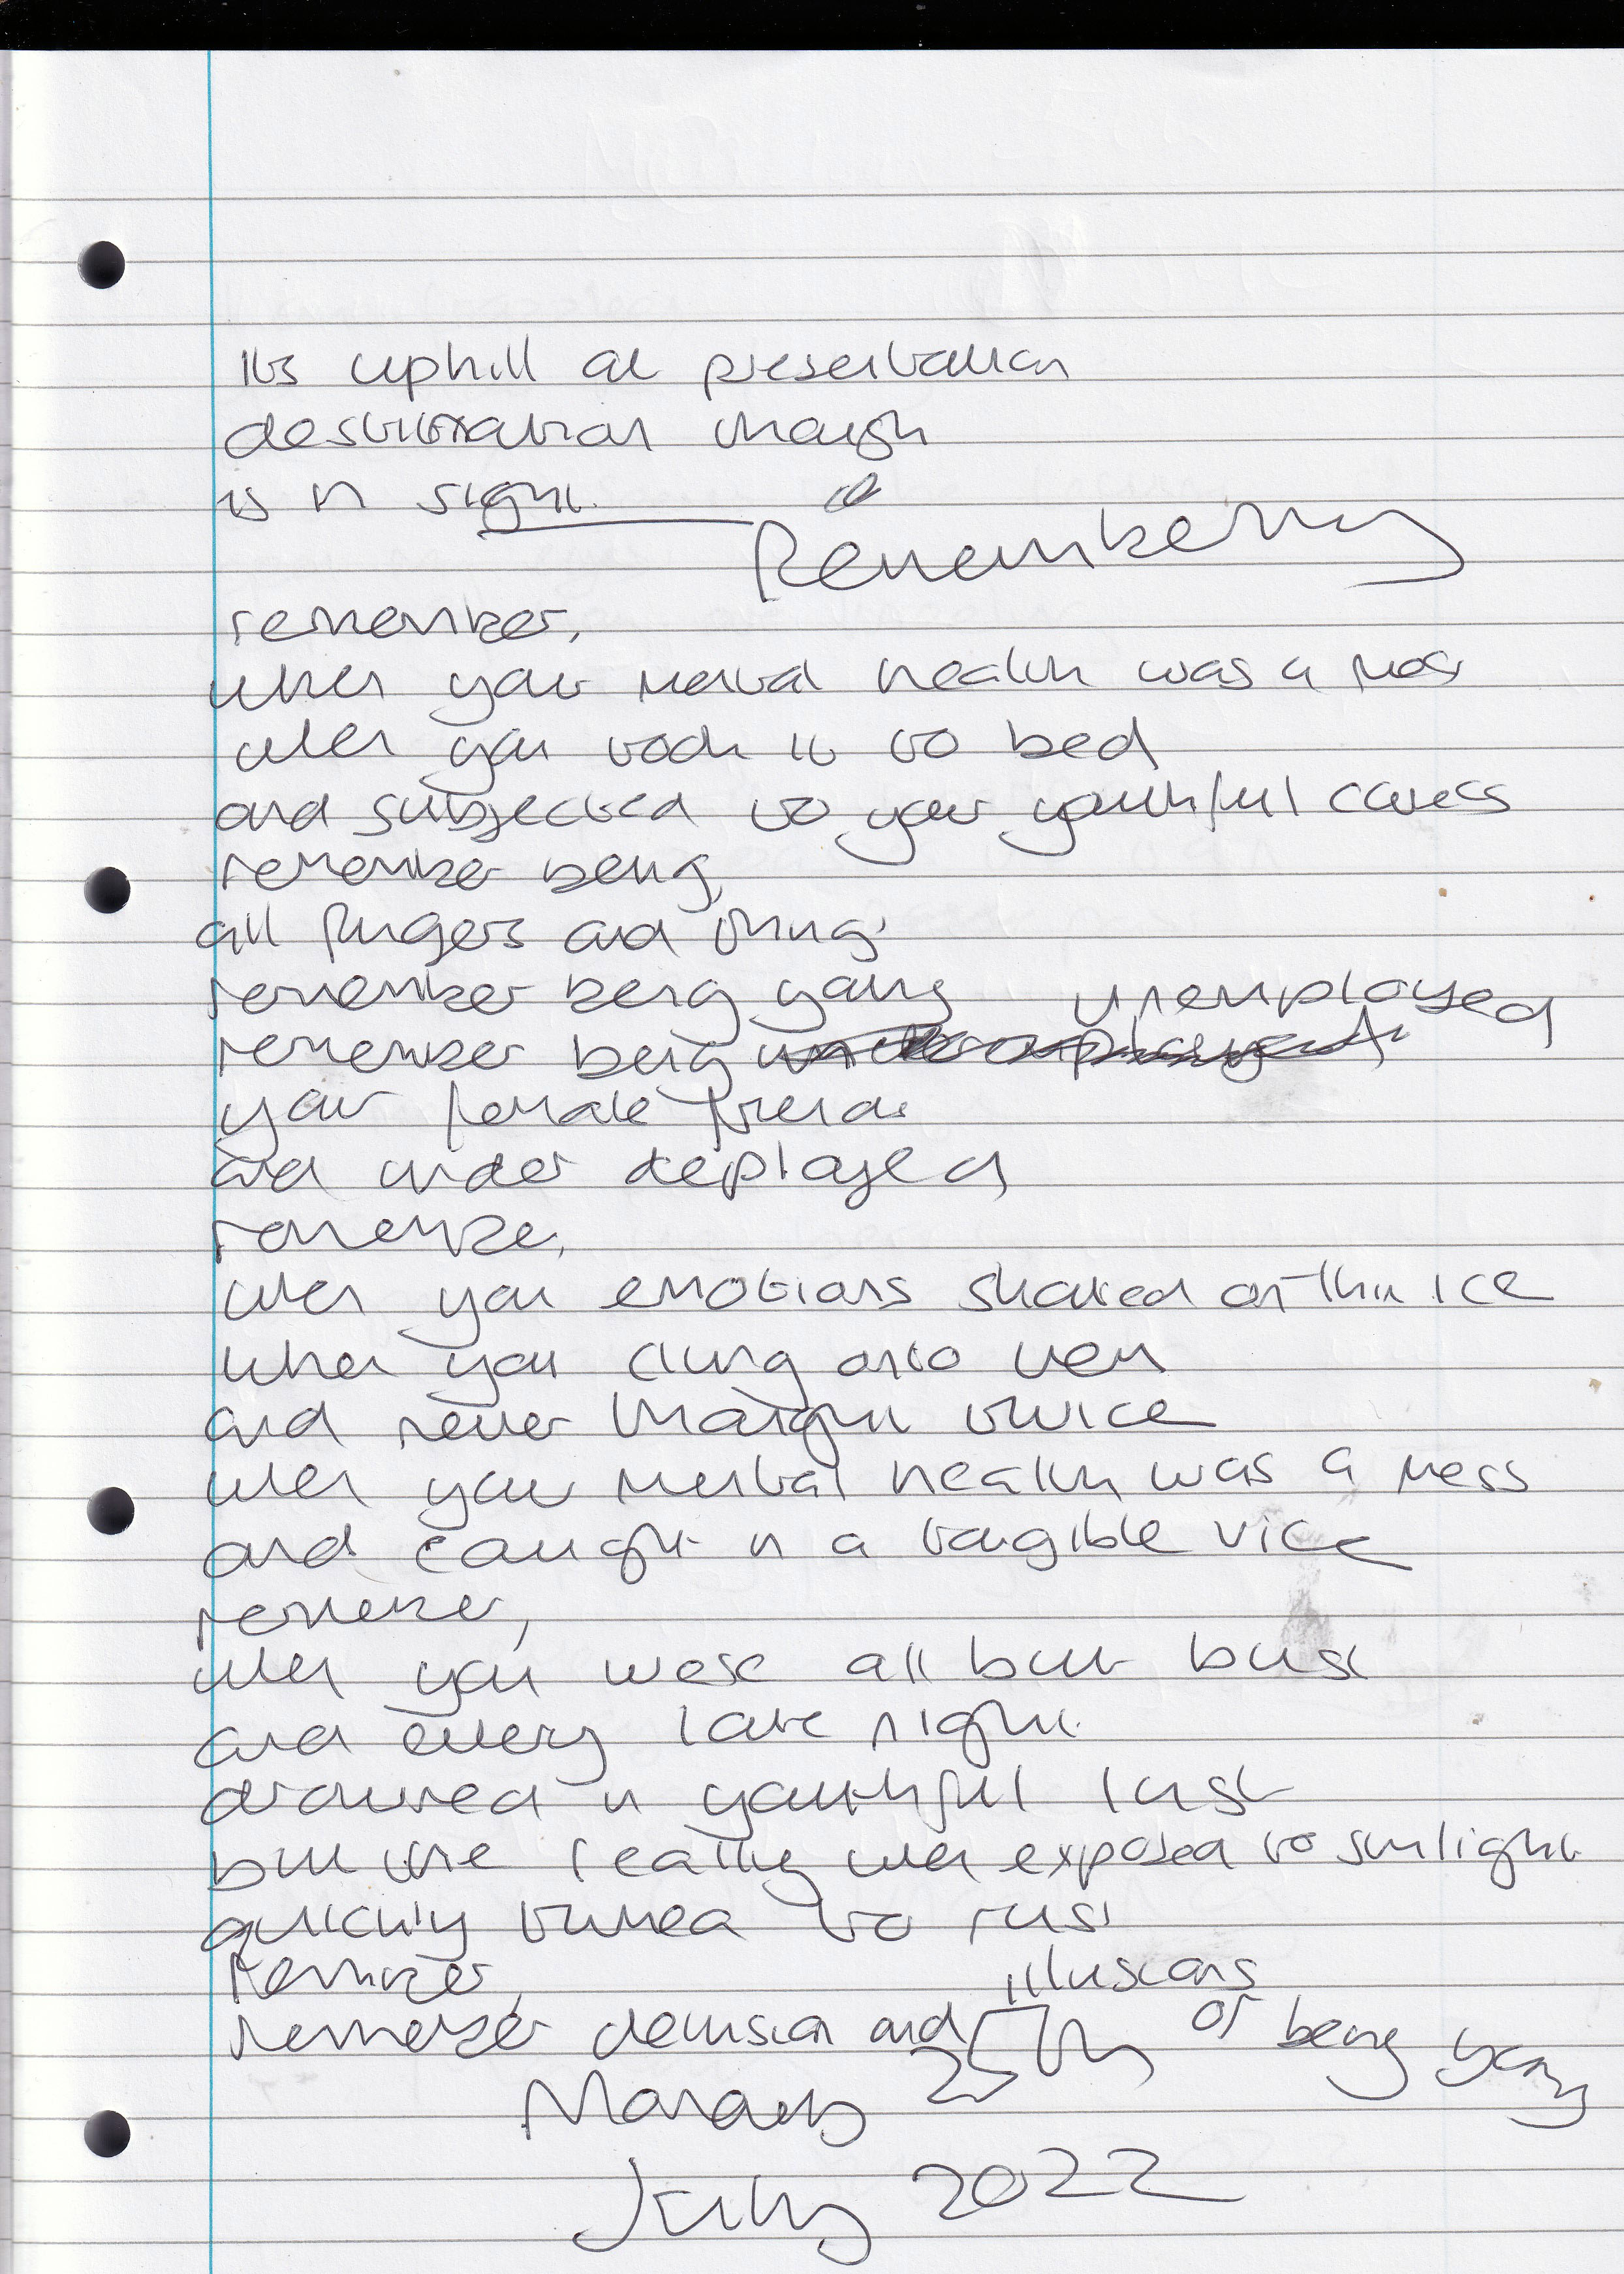 its uphill at presentation
destination though
is in sight.
Remembering
remember,
when your mental health was a mess
when you took it to bed
and subjected to your youthful caress
remember being
all fingers and things
remember being young
unemployed
remember being
your female friends
and under deployed
remember,
when you emotions skated on thin ice
when you clung onto them
and never thought twice
when your mental health was a mess
and caught in a tangible vice
remember,
when you were all but bust
and every late night
drowned in youthful lust
but the reality when exposed to sunlight
quickly turned to rust
remember,
illusions
remember delusion and of being young
Monday 25th
July 2022